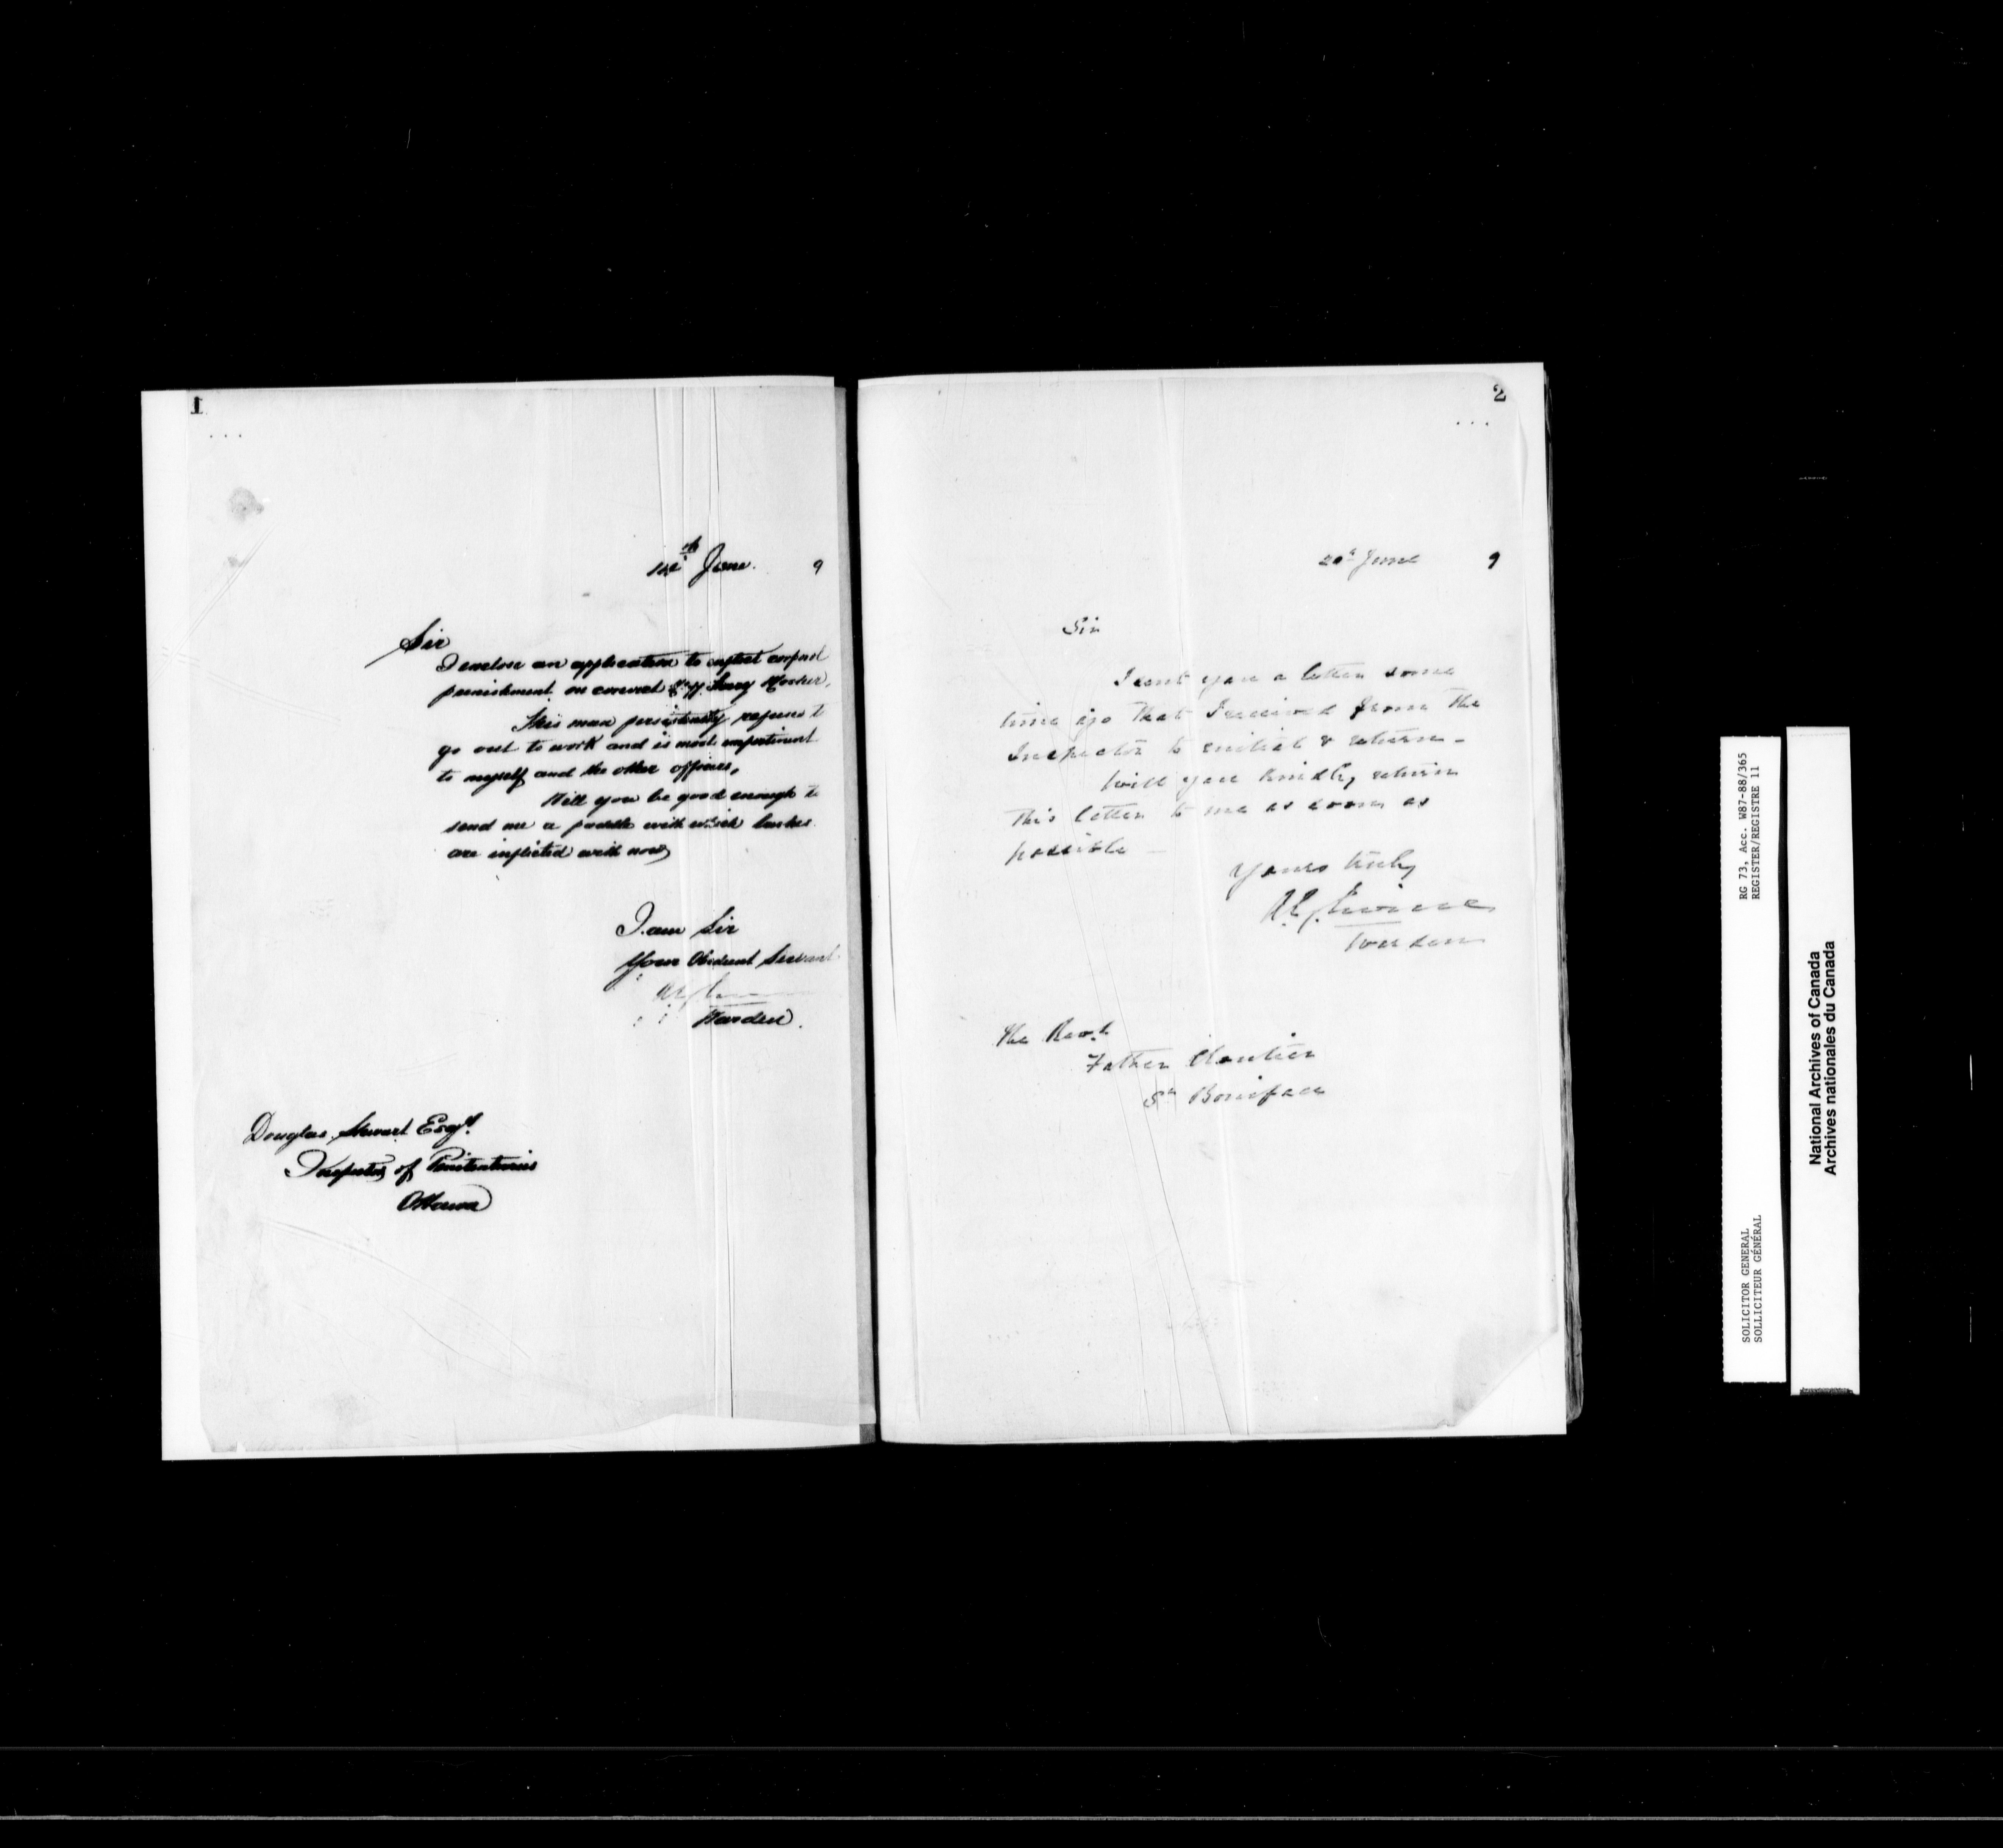 1
14th June. 9
Sir
I enclose an application to inflict corporal
punishment on convict Harry
This man persistently refuses to
go out to work and is most impertinent
to myself and the other officers,
Will you be good enough to
send me a paddle with which lashes
are inflicted with now
I am Sir
Your Obedient Servant
Warden.
Douglas Stewart Esqr.
Inspector of Penitentiaries
Ottawa
2
20th June 9
Sir
I sent you a letter some
time ago that I received from the
Inspector to initial & return -
Will you kindly return
this letter to me as soon as
possible -
Yours truly
A. G. Irvine
Warden
The Revd.
Father Cloutier
St Boniface
RG 73, Acc. W87-88/365
REGISTER/REGISTRE 11
SOLICITOR GENERAL
SOLLICITEUR GÉNÉRAL
National Archives of Canada
Archives nationales du Canada